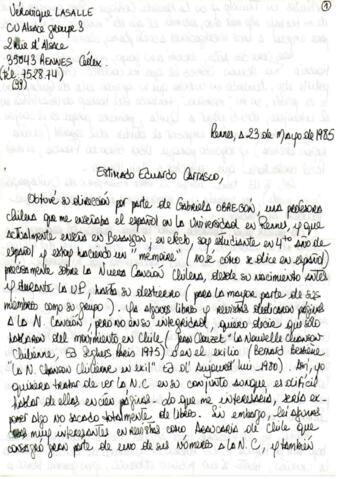 ①
Véronique LASALLE
CU Alsace groupe 3
2 rue d'Alsace
35043 RENNES Cédex
(tél. 75.28.74)
(39)
Rennes, a 23 de Mayo de 1985
ESTIMADO EDUARDO CARRASCO,
Obtuve su dirección por parte de Gabriela OBREGÓN, una profesora
chilena que me enseñaba el español en la Universidad en Rennes, y que
actualmente enseña en Besançon; en efecto, soy estudiante en 4to año de
español y estoy haciendo un "mémoire" (no sé cómo se dice en español)
precisamente sobre la Nueva Canción Chilena, desde su nacimiento antes
y durante la U.P., hasta su destierro (para la mayor parte de sus
miembros como su grupo). Ya algunos libros y revistas dedicaron páginas
a la N. Canción, pero no en su integridad, quiero decir que sólo
hablaron del movimiento en Chile (Jean Clouzet "La Nouvelle chanson
chilienne, Ed Seghers Paris 1975) o en el exilio (Bernard Bessière
"La N. Chanson Chilienne en exil" Ed d'Aujourd'hui 1980). Así, yo
quisiera tratar de ver la N.C en su conjunto aunque es difícil
hablar de ellos en cien páginas. Lo que me interesaría, sería ex-
poner algo no sacado totalmente de libros. Sin embargo, leí algunas
muy interesantes en revistas como Araucaria de Chile que
consagró gran parte de uno de sus números a la N.C, y también